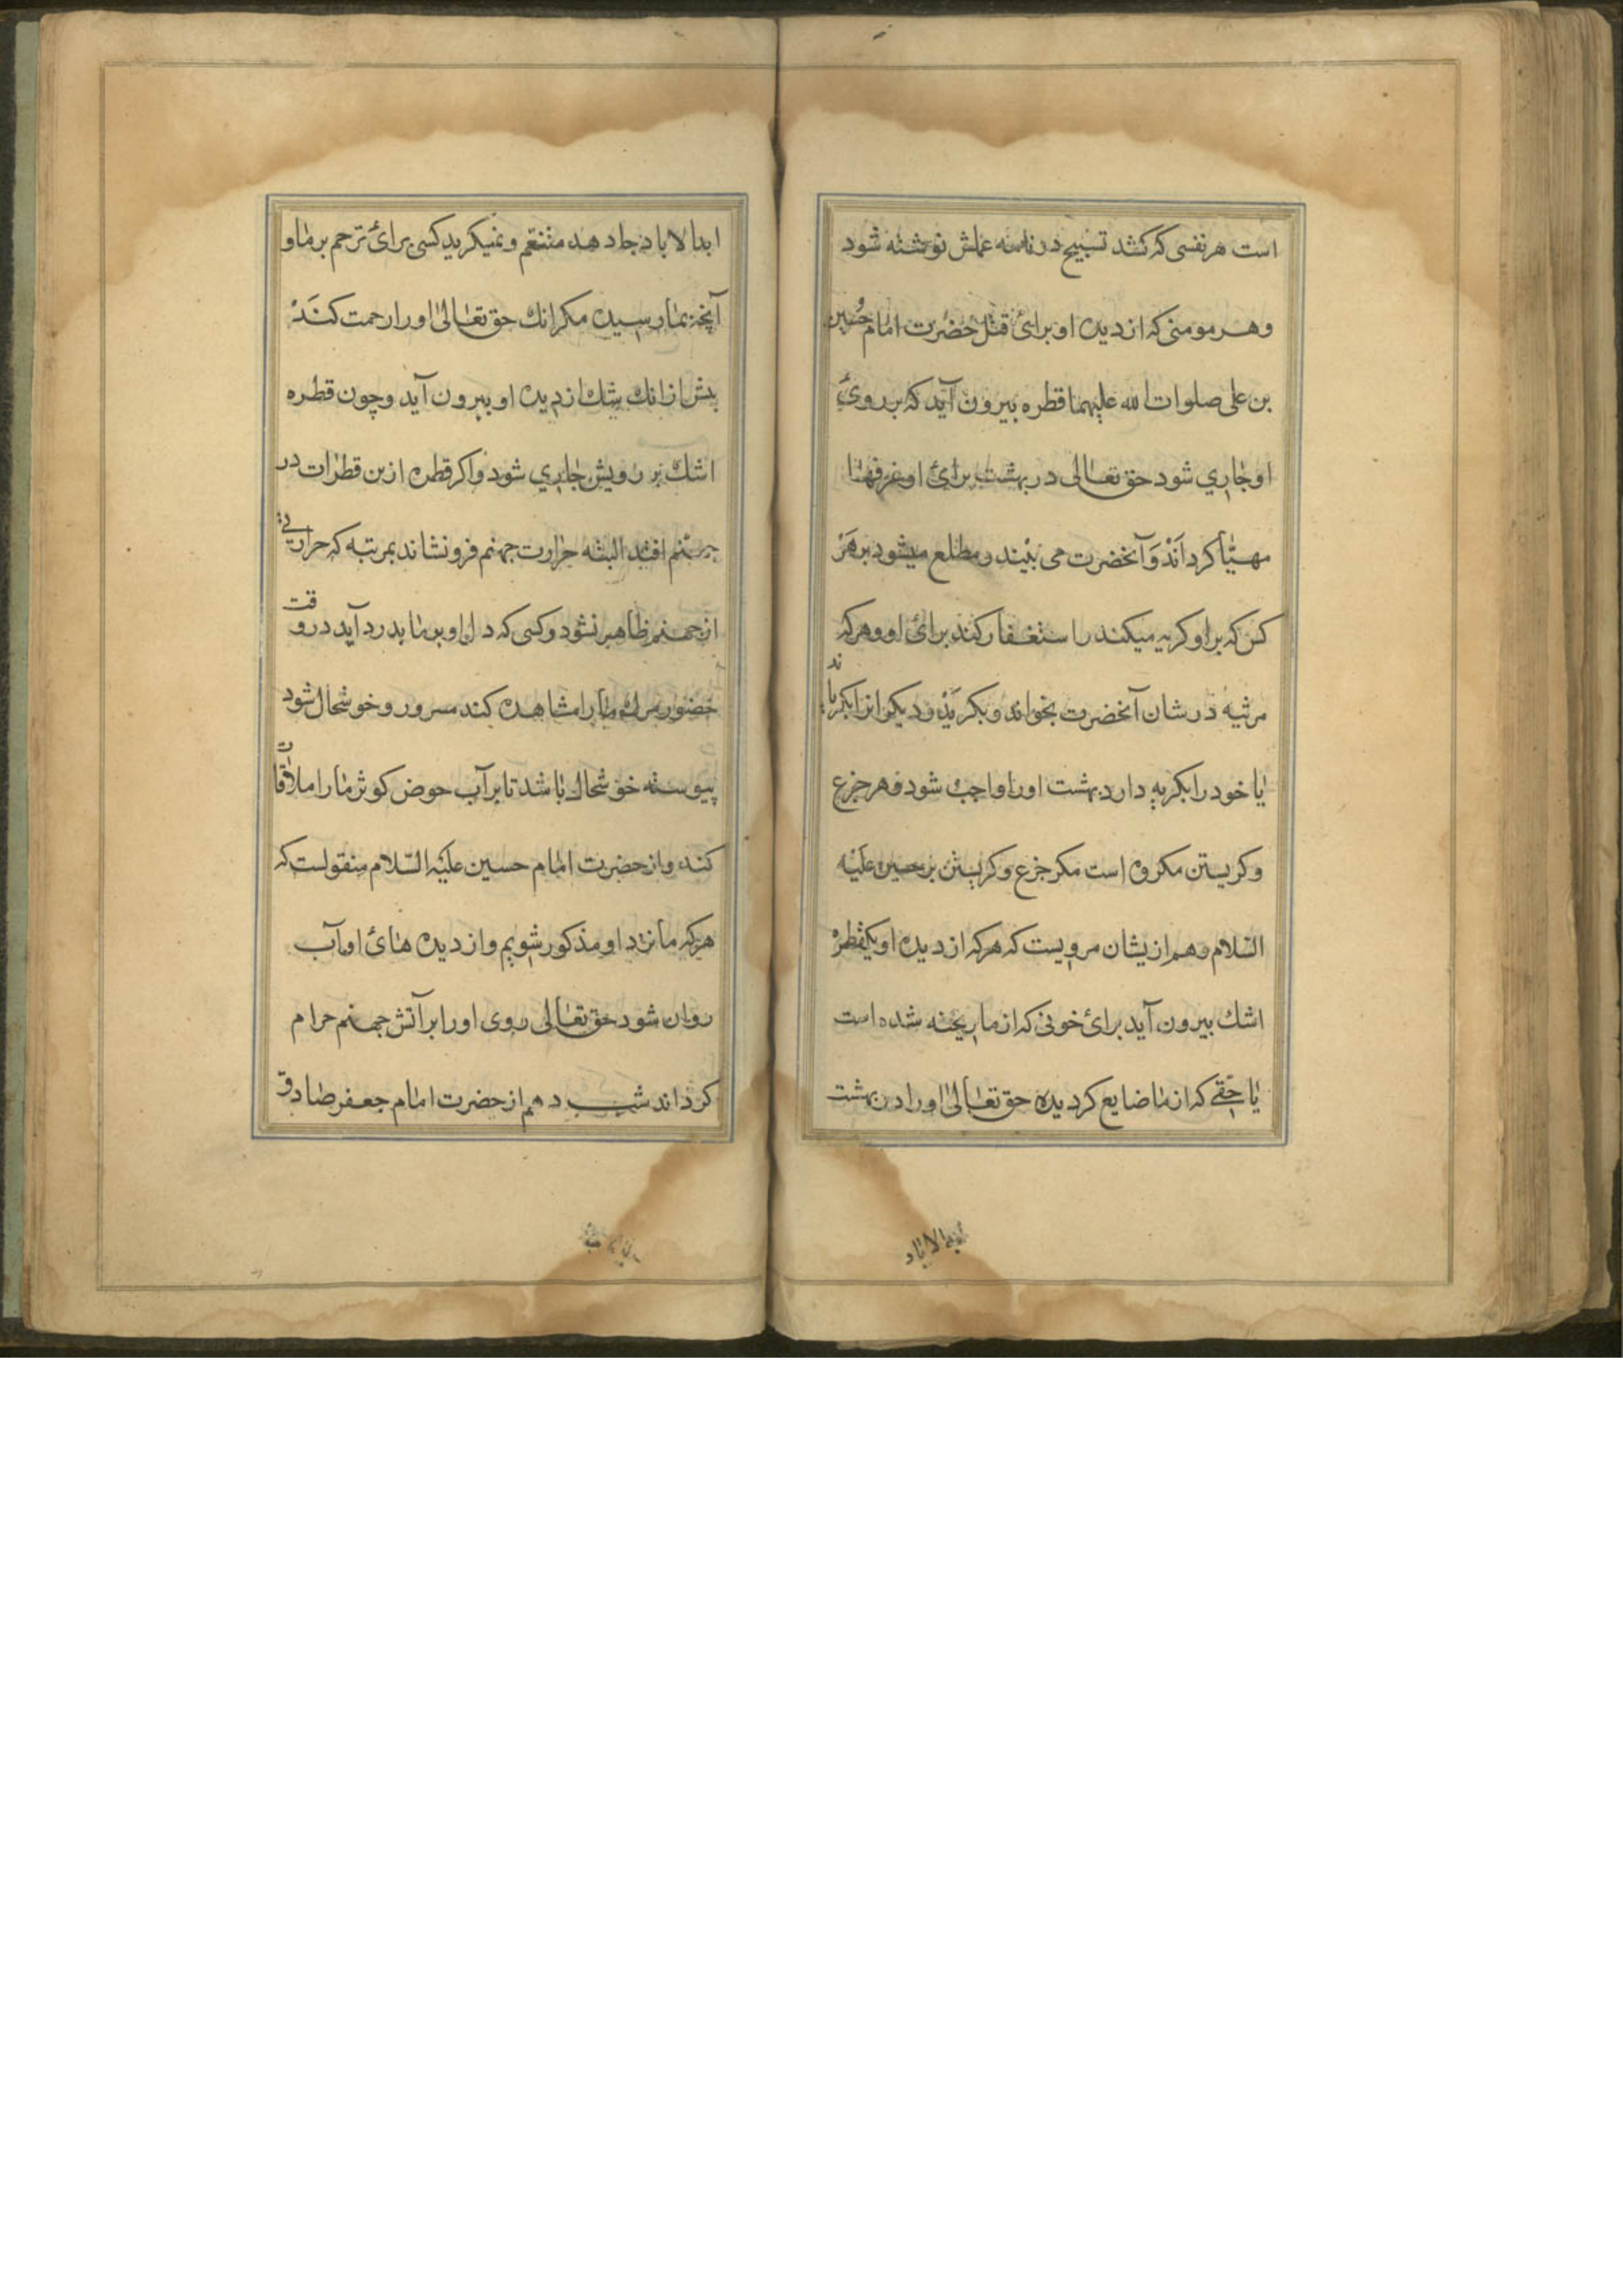 است هر نفسی که کشد تسبیح در نامه عملش نوشته شود
وهر مومنی که از دیده او برائ قتل حضرت امام حسین
بن علی صلوات الله علیهما قطره بیرون آید که بر روی
او جاری شود حق تعالی در بهشت برائ او غرفها
مهیّا کرداند وآنحضرت می بیند و مطلع میشود بر هر
کس که بر او کریه میکند و استغفار کند برائ او وهرکه
مرثیه در شان آنحضرت بخواند وبکرید ودیکرانرا بکریاند
یا خود را بکریه دارد بهشت اورا واجب شود وهر جزع
وکریستن مکروه است مکر جزع وکریستن بر حسین علیه
السّلام وهم ازیشان مرویست که هرکه از دیده او یکقطره
اشك بیرون آید برائ خونی که از ما ریخته شده است
یا حقے که از ما ضایع کردیده حق تعالی اورا در بهشت
ابدالاباد
ابدالاباد جا دهد متنعّم ونمیکرید کسی برائ ترحم بر ما و
آنچه بما رسیده مکر انك حق تعالی اورا رحمت کند
پیش از انك اشك از دیده او بیرون آید وچون قطره
اشك بر رویش جاری شود واکر قطره ازین قطرات در
جهنم افتد البته حرارت جهنم فرو نشاند بمرتبه که حرارتی
از جهنم ظاهر نشود وکسی که دل او بر ما بدرد آید در وقت
حضور مرك ما را مشاهده کند مسرور وخوشحال شود
پیوسته خوشحال باشد تا بر آب حوض کوثر ما را ملاقات
کند واز حضرت امام حسین علیه السّلام منقولست که
هرکه ما نزد او مذکور شویم واز دیده هائ او آب
روان شود حق تعالی روی اورا بر آتش جهنم حرام
کرداند شب دهم از حضرت امام جعفر صادق